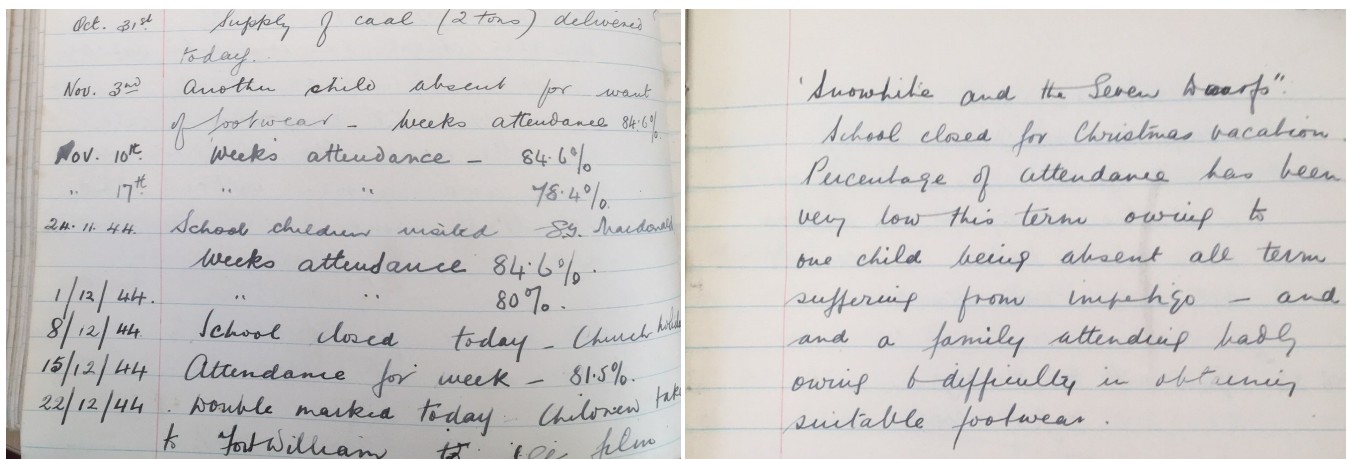 Oct. 31st Supply of coal (2 tons) delivered
today.
Nov. 3nd Another child absent for want
of footwear - Weeks attendance 84.6%.
Nov. 10th Weeks attendance - 84.6%
" 17th " " 78.4%.
24.11.44 School children visited Sg. Macdonald
Weeks attendance 84.6%.
1/12/44. " " 80%.
8/12/44. School closed today - Church
15/12/44 Attendance for week - 81.5%.
22/12/44. Double marked today. Children take
to Fort William to see film
'Snowhite and the Seven Dwarfs".
School closed for Christmas vacation.
Percentage of attendance has been
very low this term owing to
one child being absent all term
suffering from impetigo - and
and a family attending badly
owing to difficulty in obtaining
suitable footwear.